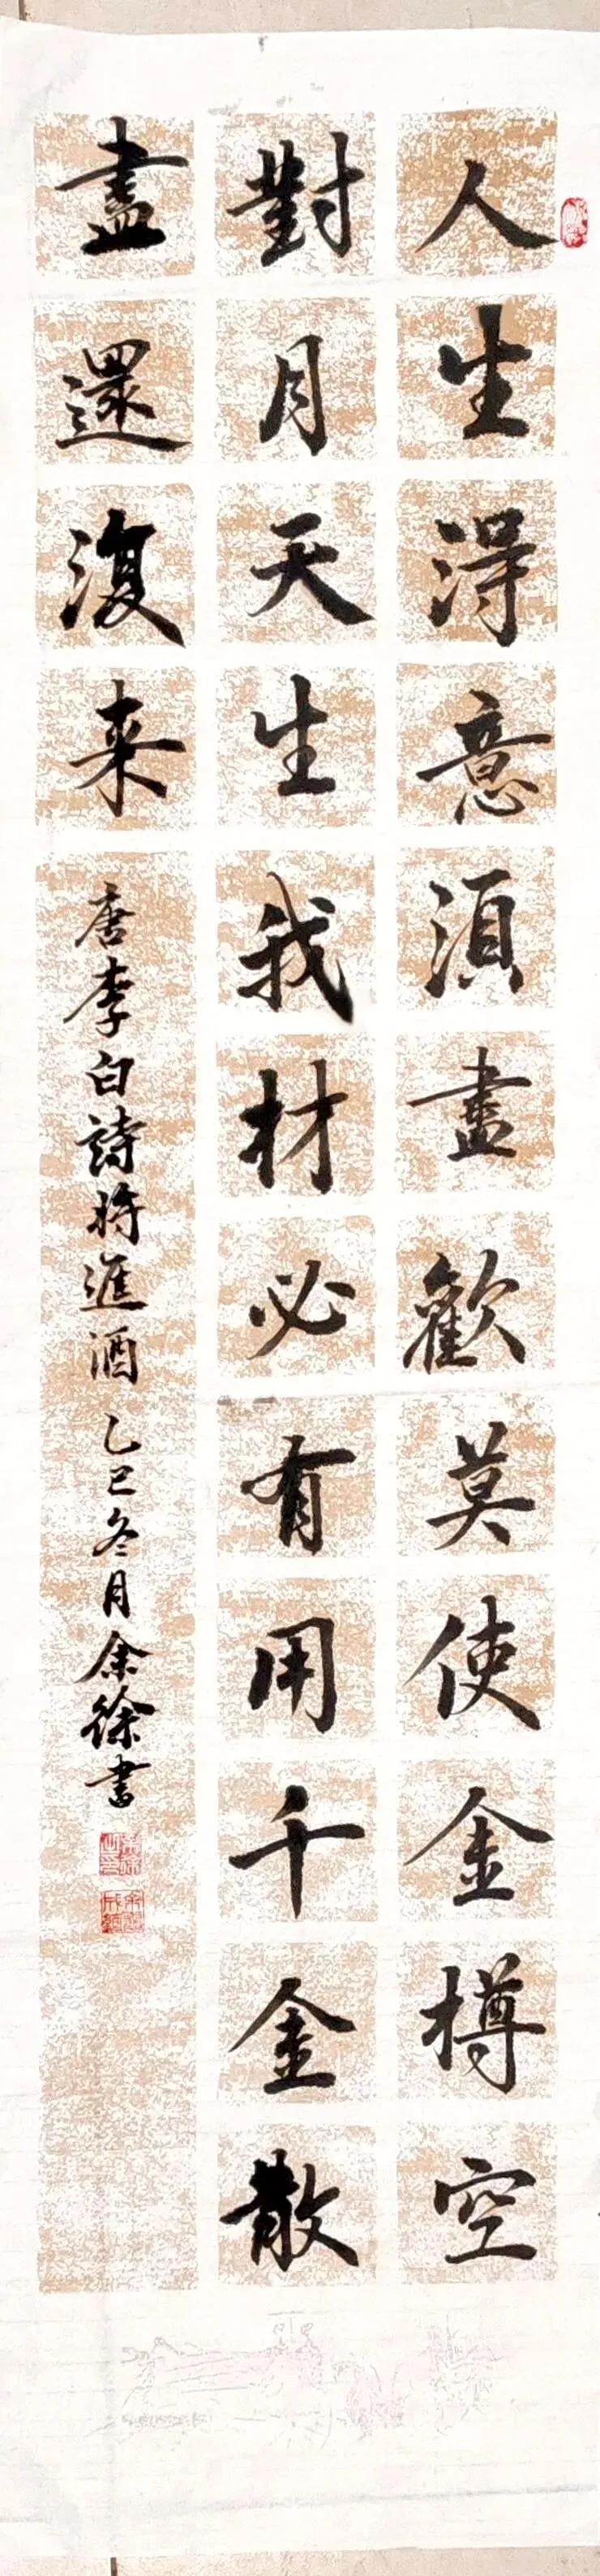 人生得意須盡歡莫使金樽空
對月天生我材必有用千金散
盡還復来
唐李白詩将進酒乙巳冬月余徐書